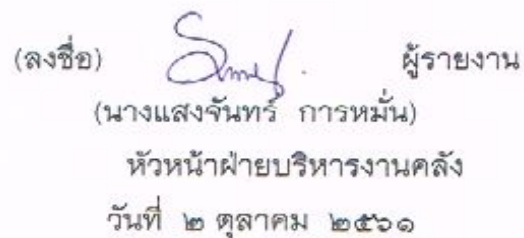 (ลงชื่อ) ผู้รายงาน
(นางแสงจันทร์ การหมั่น)
หัวหน้าฝ่ายบริหารงานคลัง
วันที่ ๒ ตุลาคม ๒๕๖๑